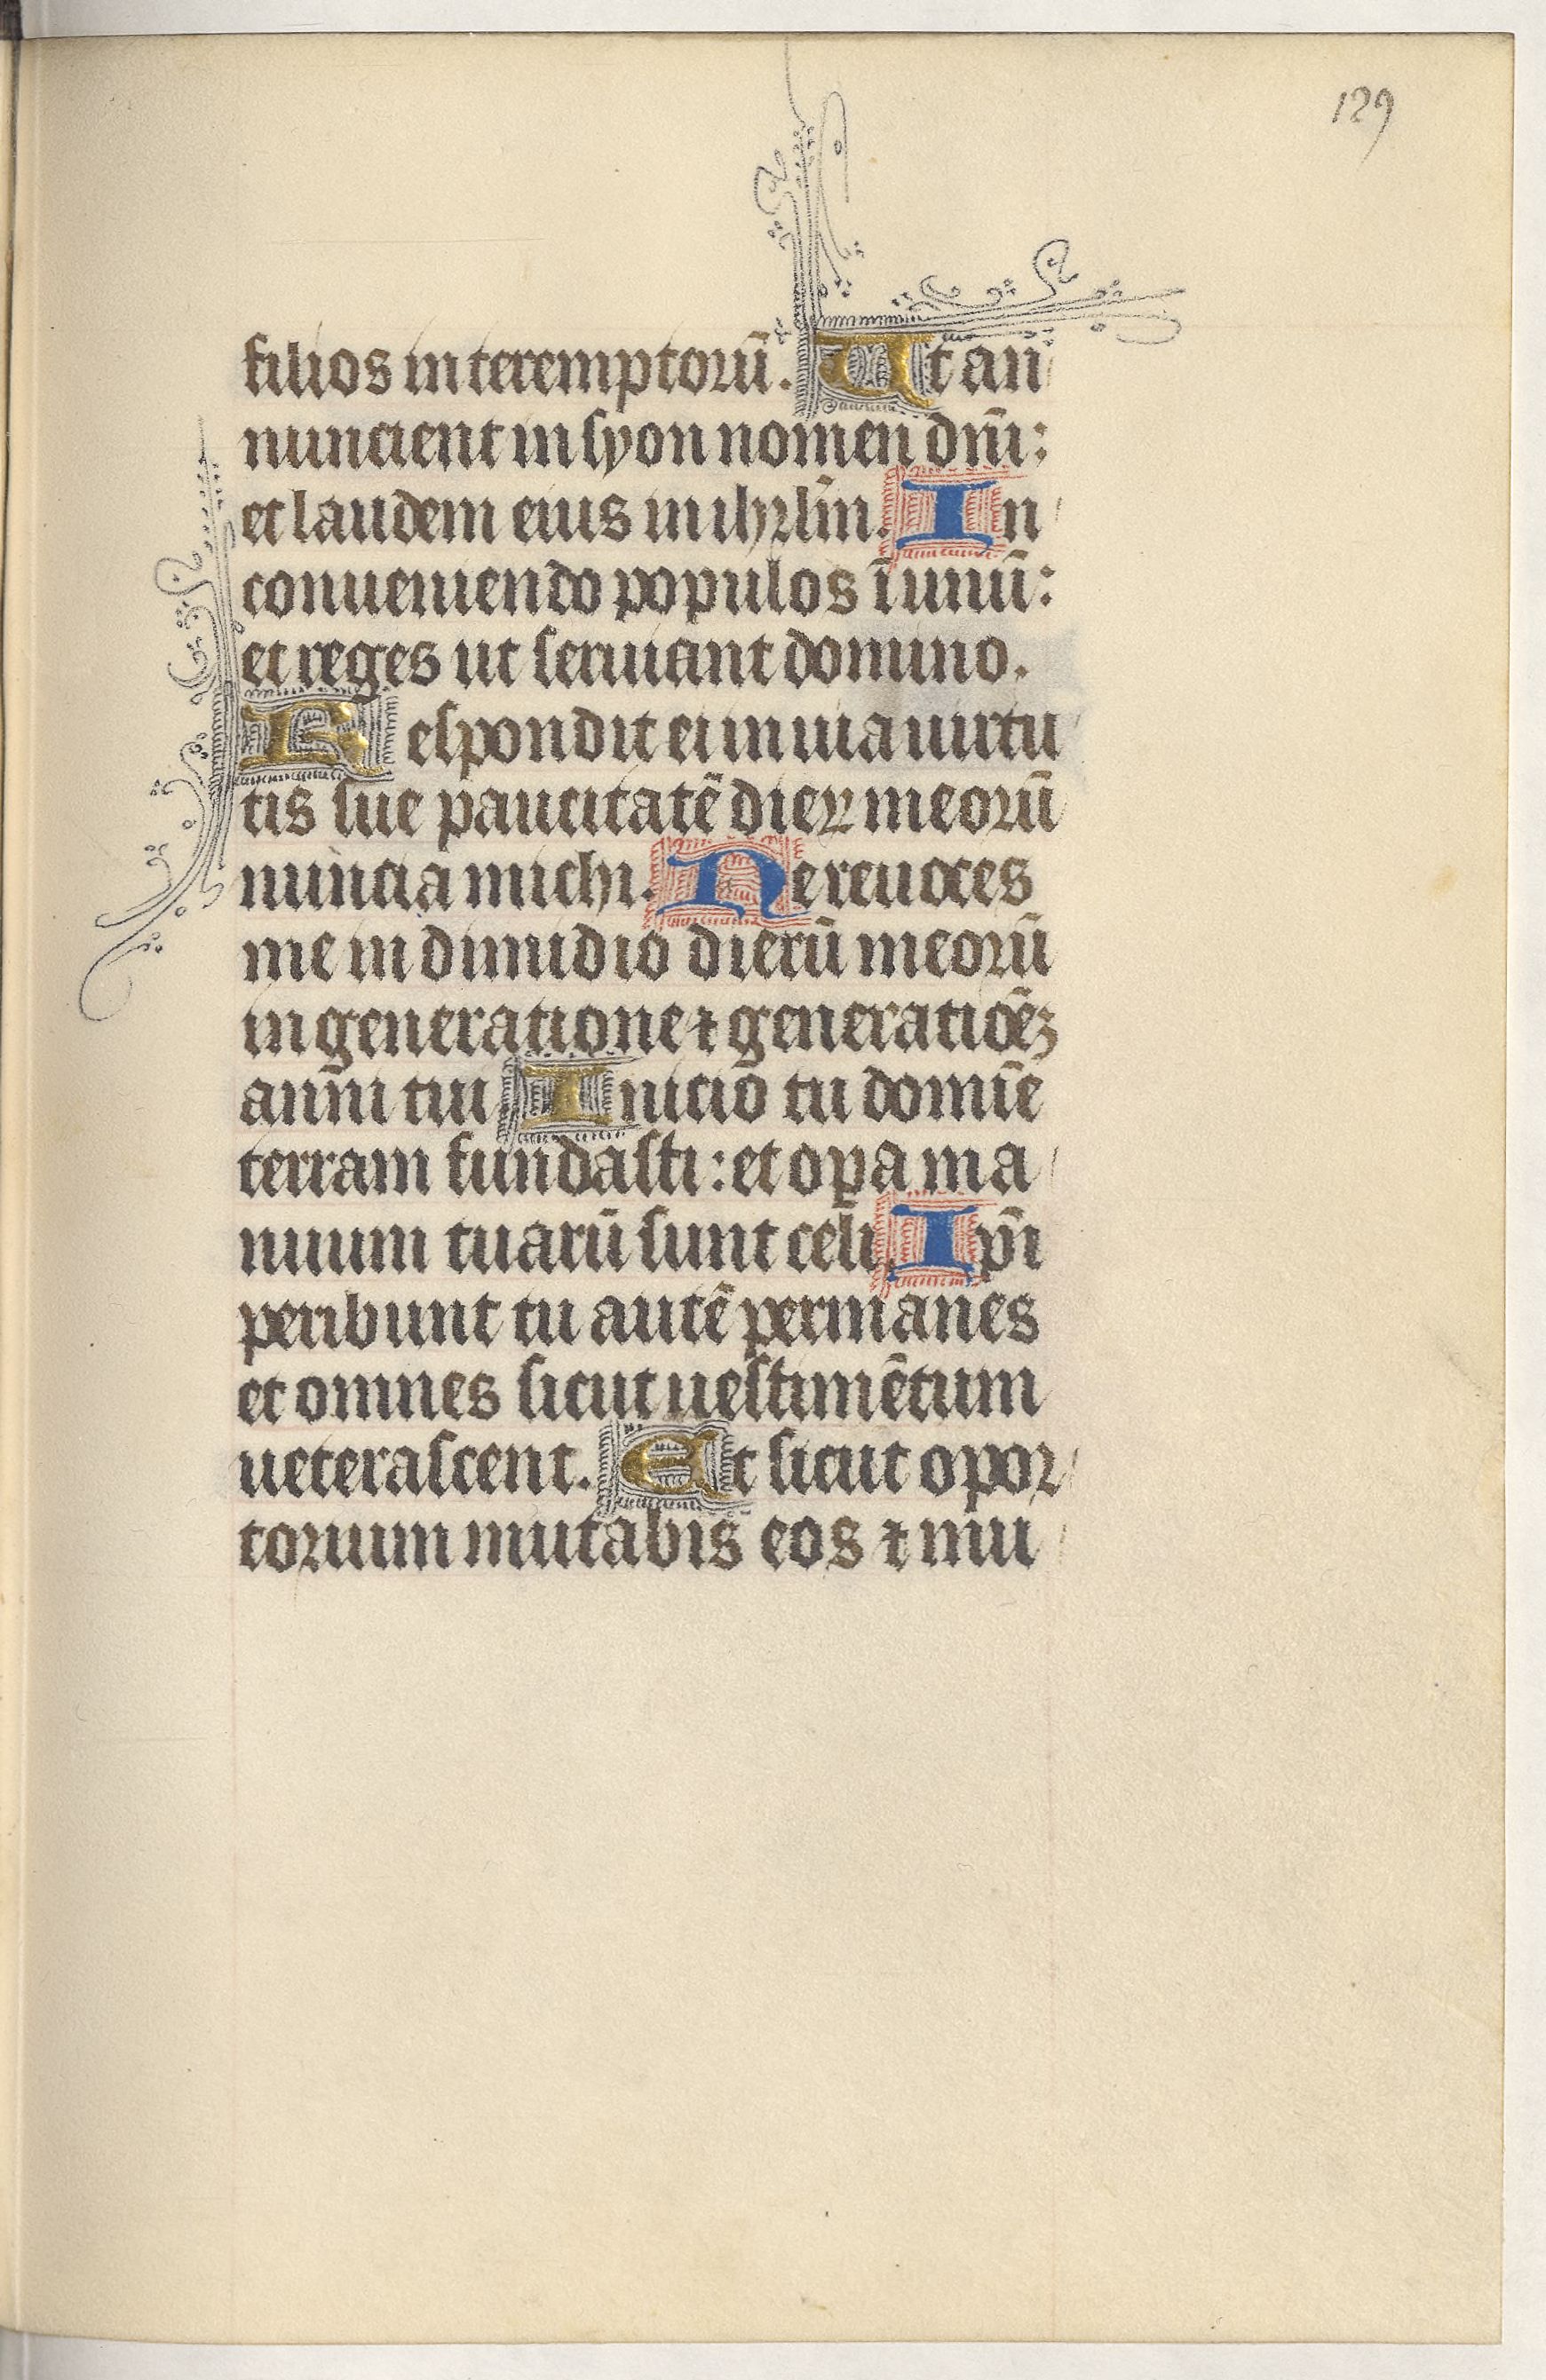 129
filios interemptorū. Ut an
nuncient in syon nomen dn̄i:
et laudem eius in ihrl̄m. In
conueniendo populos ī unū:
et reges ut seruiant domino.
Respondit ei in uia uirtu
tis sue paucitatē dieꝝ meorū
nuncia michi. Ne reuoces
me in dimidio dierū meorū
in generatione ⁊ generatiōēꝫ
anni tui. Inicio tu domīe
terram fundasti: et opa ma
nuum tuarū sunt celi. Ip̄i
peribunt tu autē permanes
et omnes sicut uestimētum
ueterascent. Et sicut opor
torium mutabis eos ⁊ mu